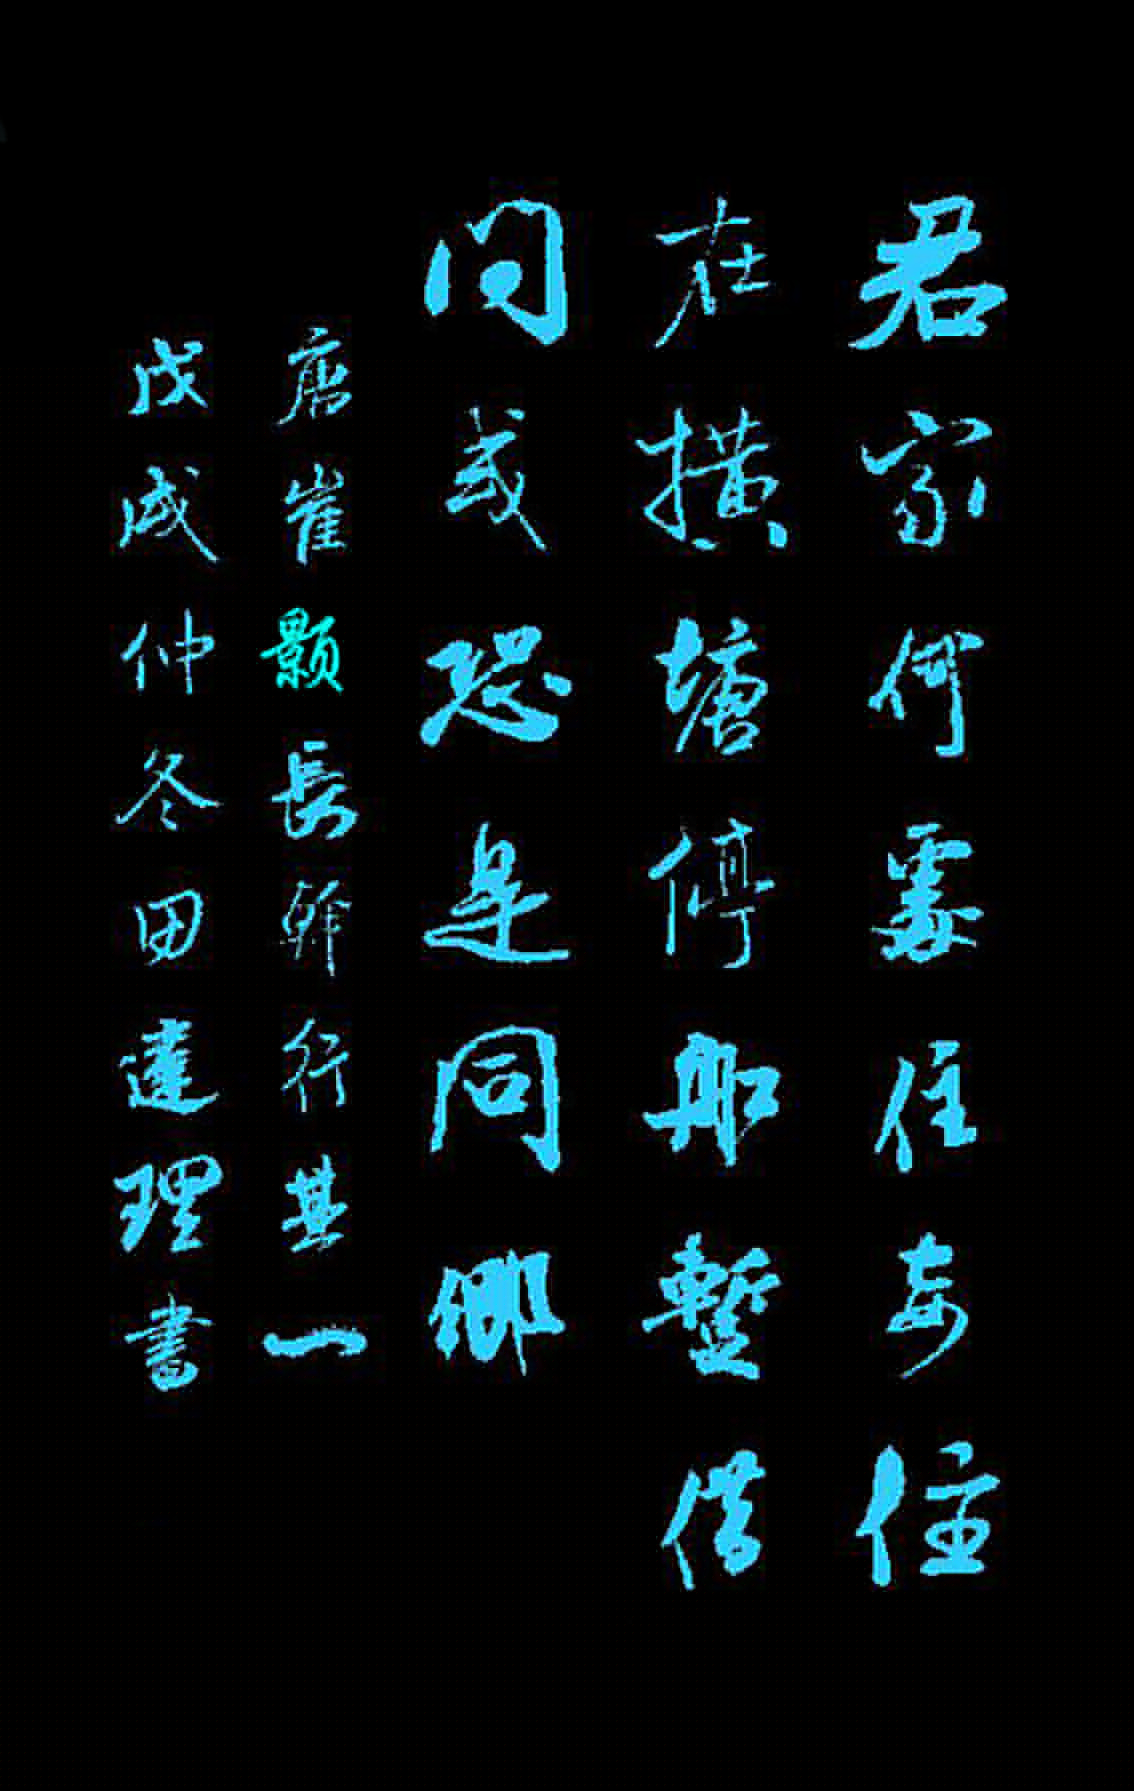 君家何處住妾住
在横塘停船暫借
問或恐是同鄉
唐崔颢長幹行其一
戊戌仲冬田達理書